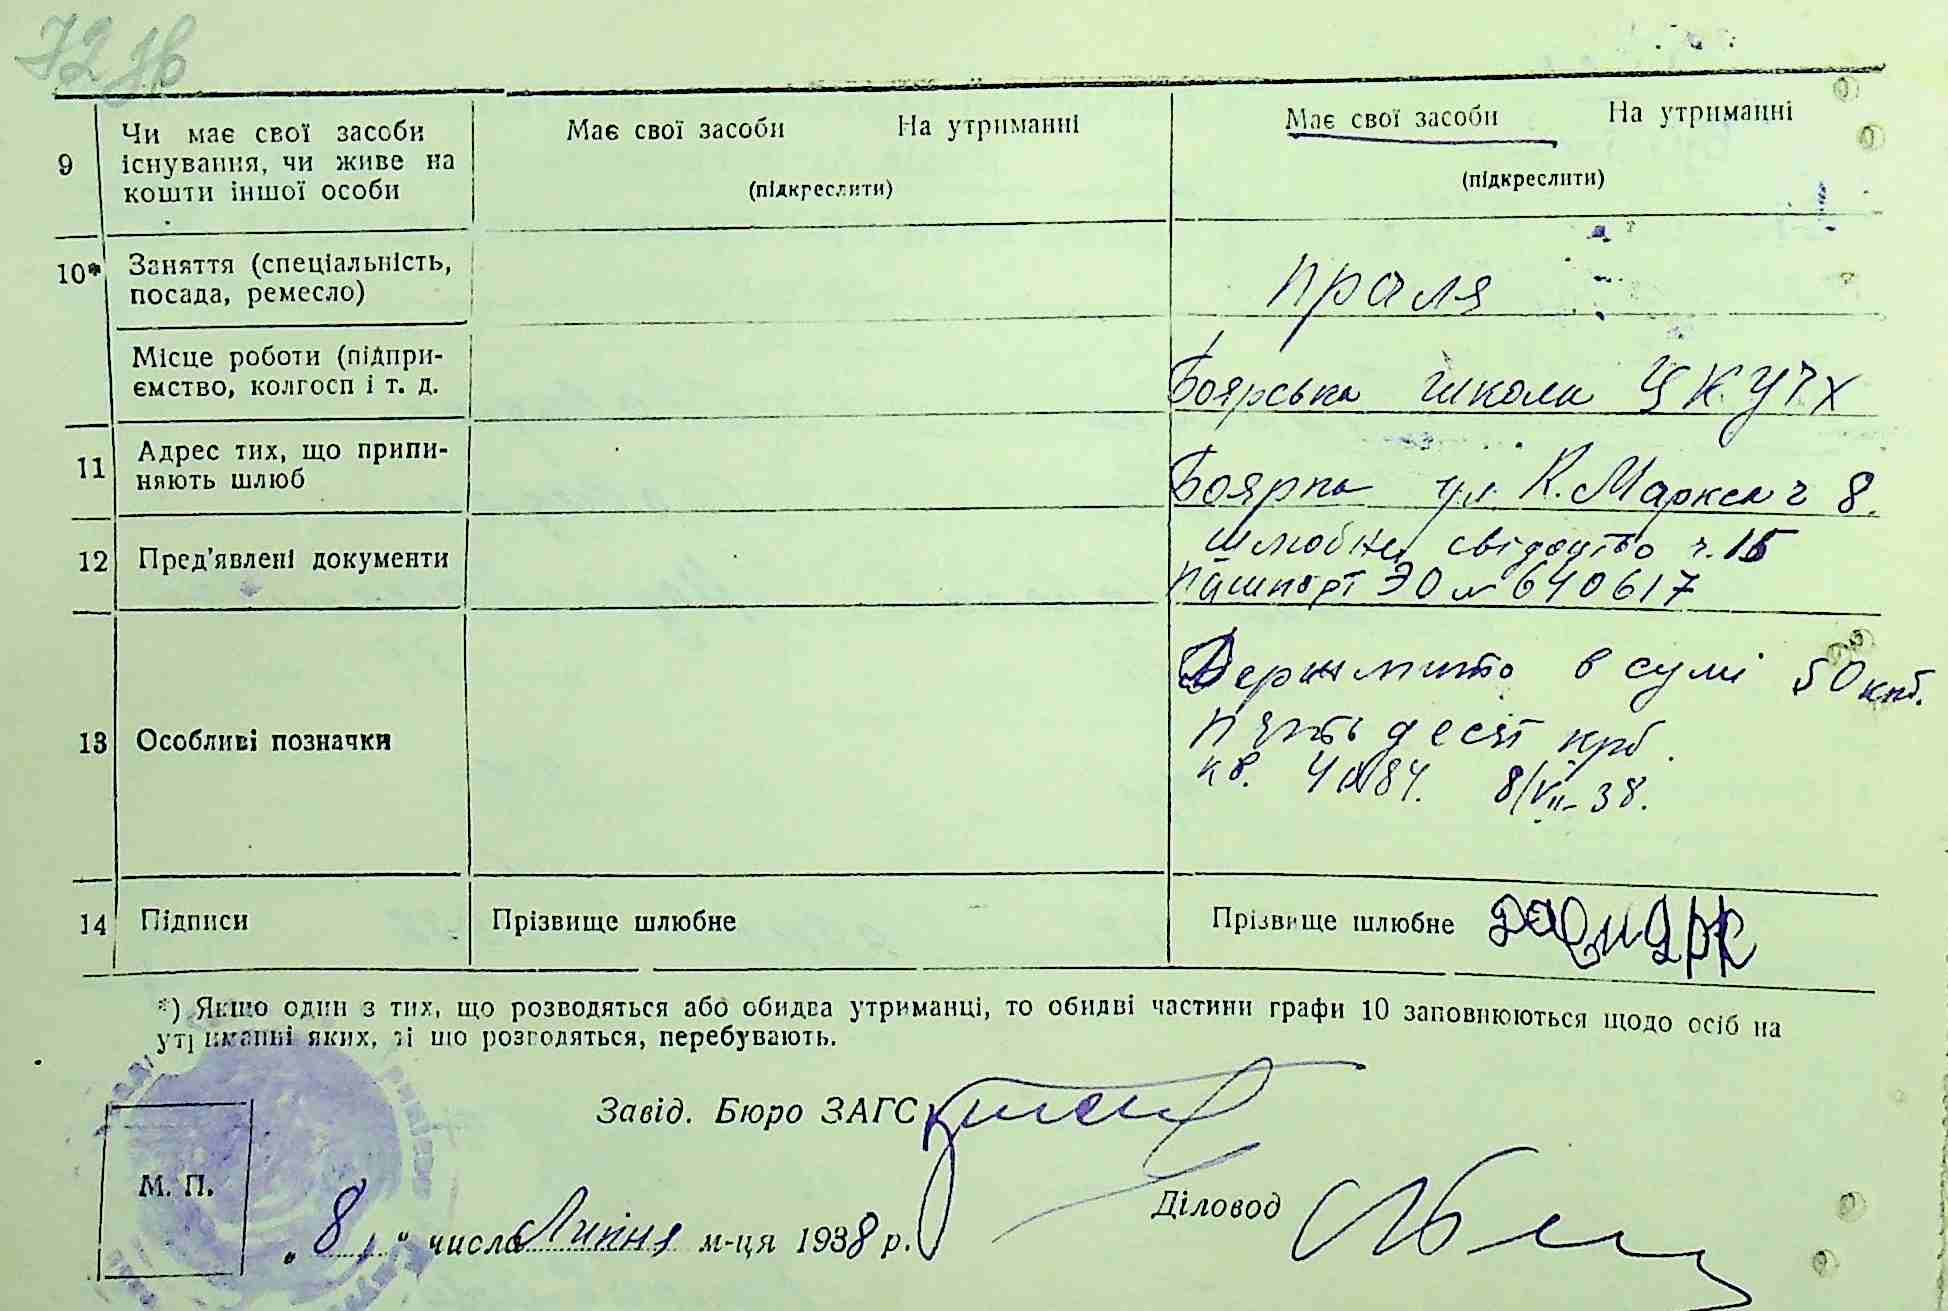 72 зв
9
Чи має свої засоби
існування, чи живе на
кошти іншої особи
Має свої засоби На утриманні
(підкреслити)
Має свої засоби На утриманні
(підкреслити)
10*
Заняття (спеціальність,
посада, ремесло)
праля
Місце роботи (підпри-
ємство, колгосп і т. д.
Боярська школа
11
Адрес тих, що припи-
няють шлюб
Боярка ул. К. Маркса ч 8.
12
Пред'явлені документи
шлюбне свідоцтво ч. 15
Пашпорт ЭО № 640617
13
Особливі позначки
Держмито в сумі 50 крб.
Пятьдесят крб.
кв. 8/VII-38.
14
Підписи
Прізвище шлюбне
Прізвище шлюбне
*) Якщо один з тих, що розводяться або обидва утриманці, то обидві частини графи 10 заповнюються щодо осіб на
утриманні яких, ті що розводяться, перебувають.
Завід. Бюро ЗАГС
М. П.
Діловод
„8" числа Липня м-ця 1938 р.